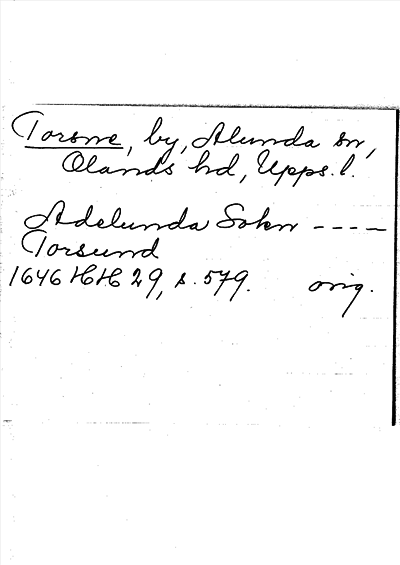 Torsne, by, Alunda sn,
Olands hd, Upps. l.
Adelunda Sokn ----
Torsund
1646 HH 29, s. 579. orig.